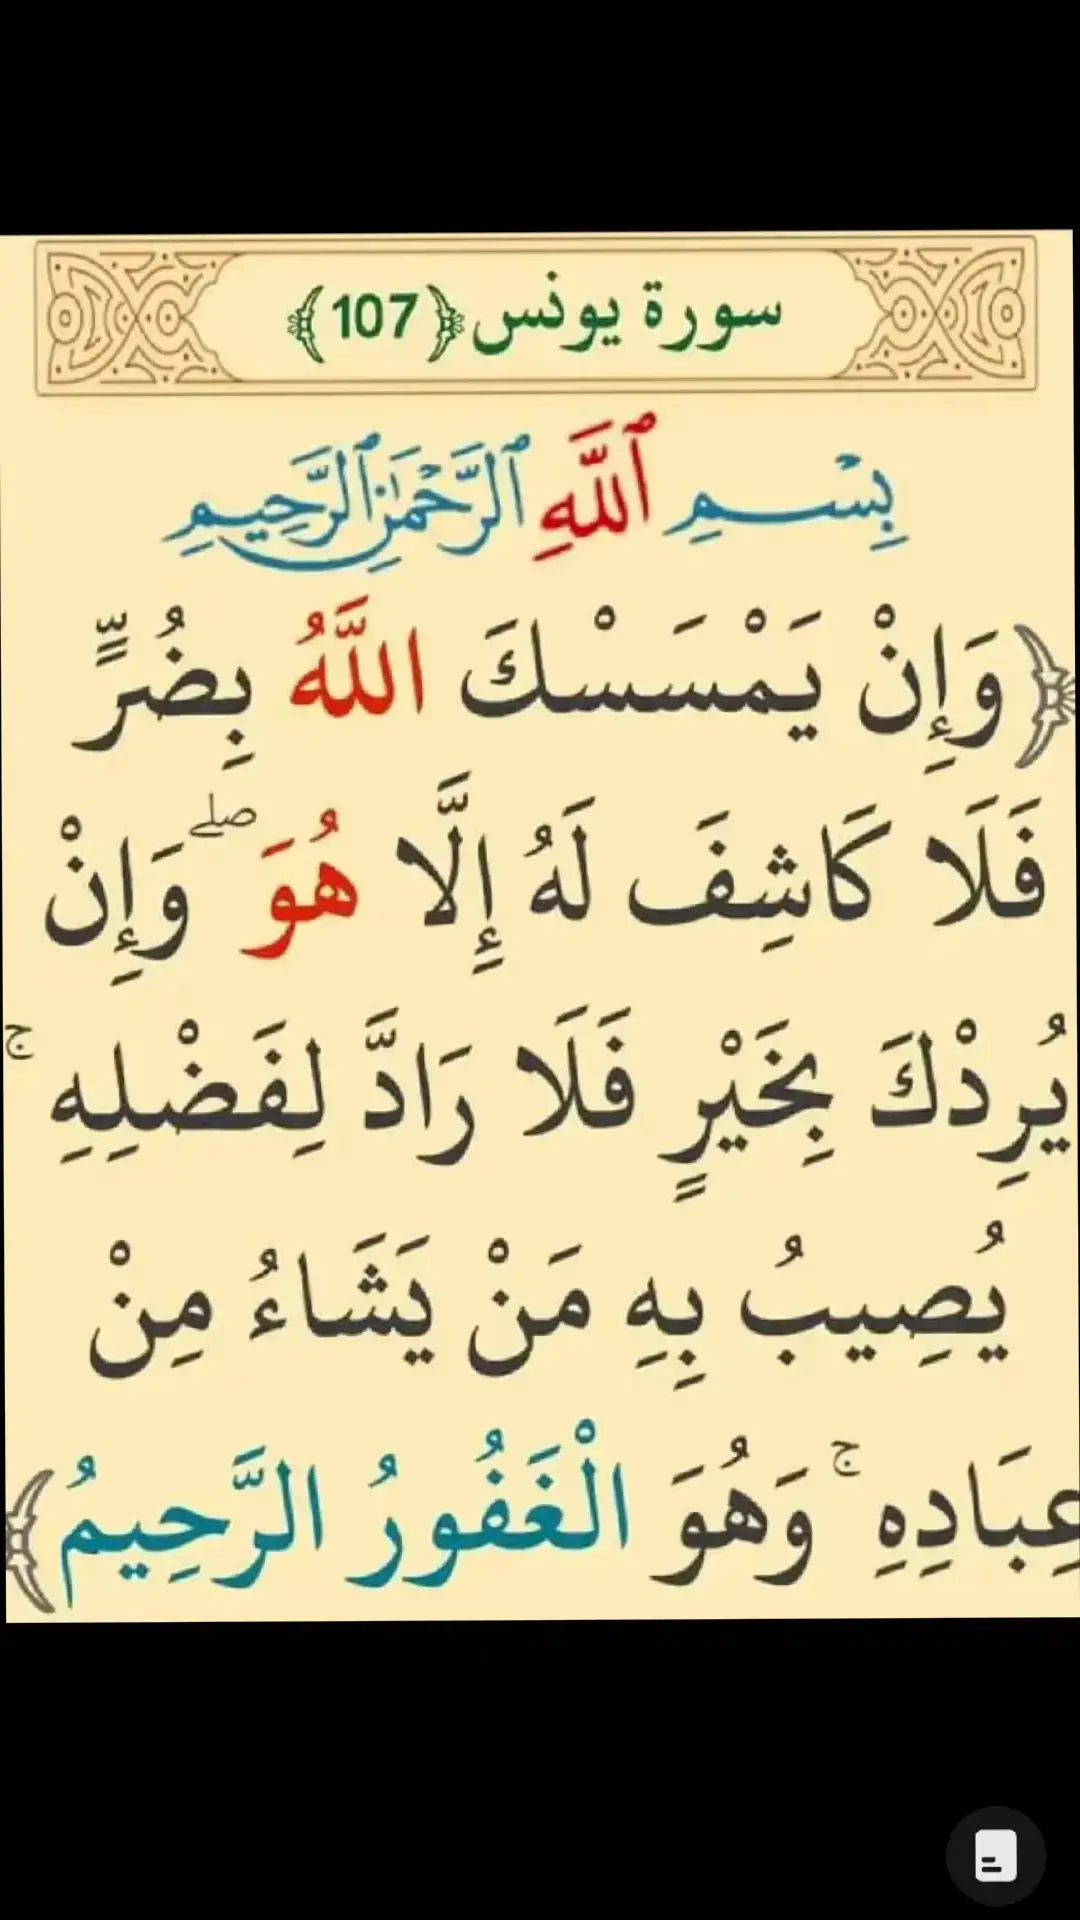 سورة يونس ﴿107﴾
بِسْمِ ٱللَّهِ ٱلرَّحْمَٰنِ ٱلرَّحِيمِ
﴿وَإِنْ يَمْسَسْكَ اللَّهُ بِضُرٍّ
فَلَا كَاشِفَ لَهُ إِلَّا هُوَ ۖ وَإِنْ
يُرِدْكَ بِخَيْرٍ فَلَا رَادَّ لِفَضْلِهِ ۚ
يُصِيبُ بِهِ مَنْ يَشَاءُ مِنْ
عِبَادِهِ ۚ وَهُوَ الْغَفُورُ الرَّحِيمُ﴾